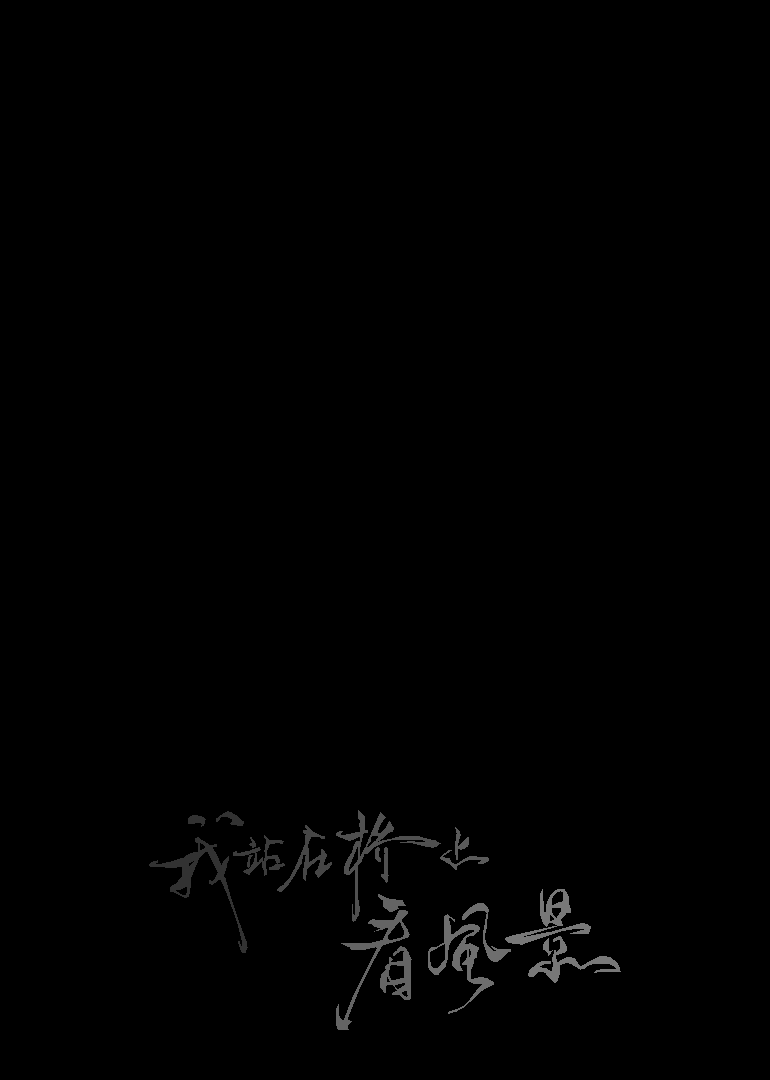 我站在桥上
看風景